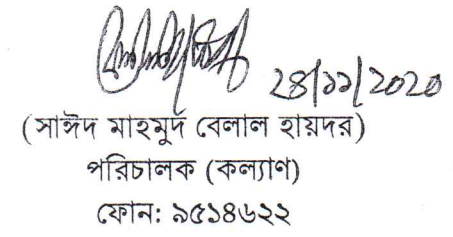 ২৪/১১/২০২০
(সাঈদ মাহমুদ বেলাল হায়দর)
পরিচালক (কল্যাণ)
ফোন: ৯৫১৪৬২২